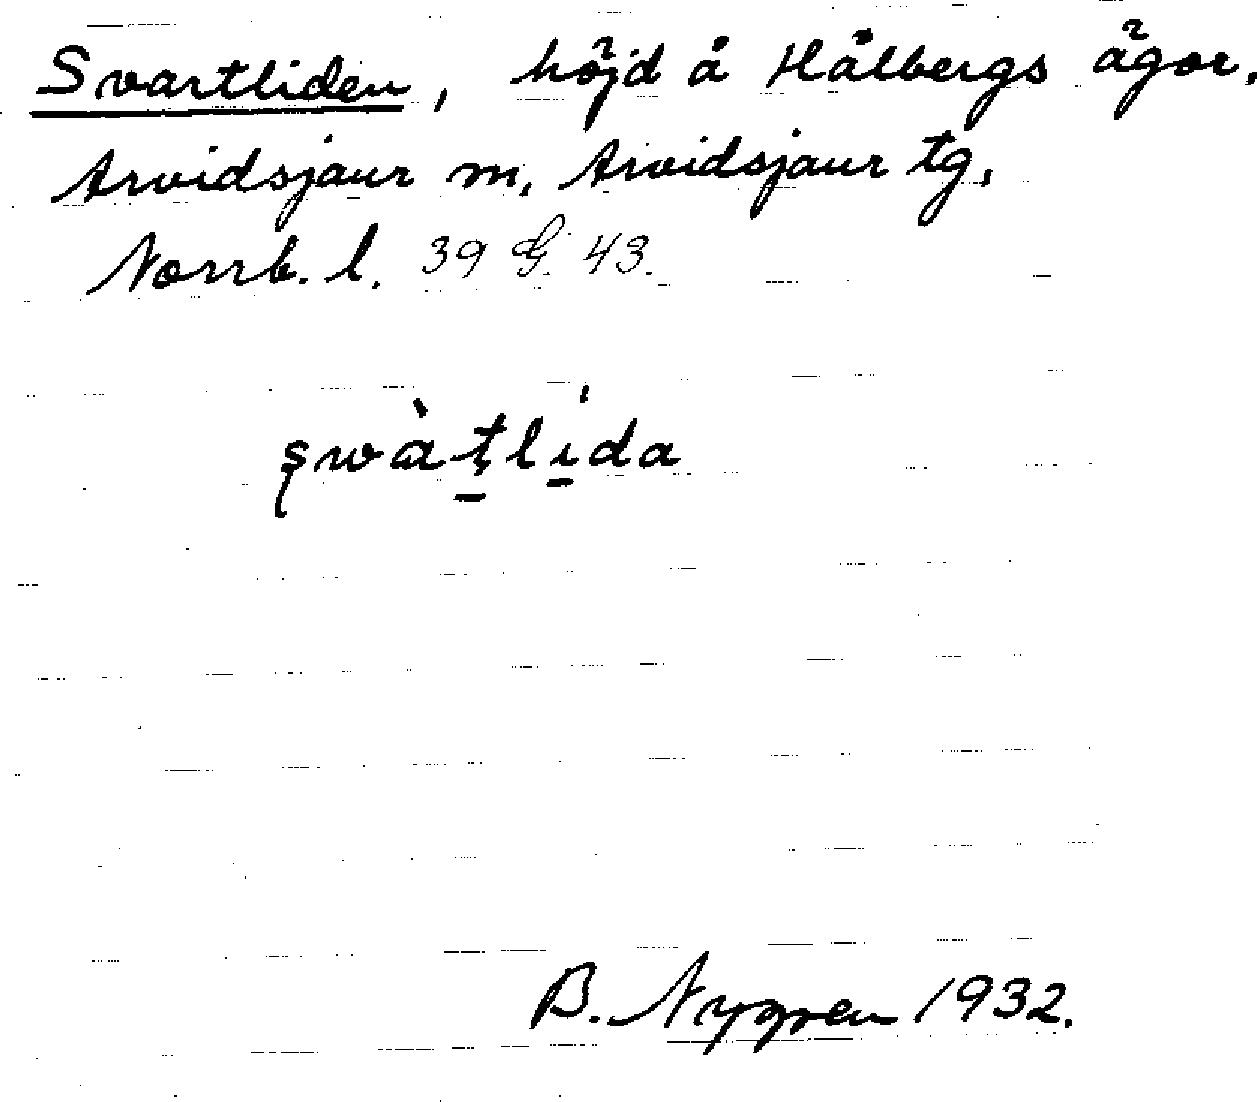 Svartliden, höjd å Hålbergs ägor,
Arvidsjaur m, Arvidsjaur tg,
Norrb. l. 39 G. 43.
swàṭlída
B. Nygren 1932.